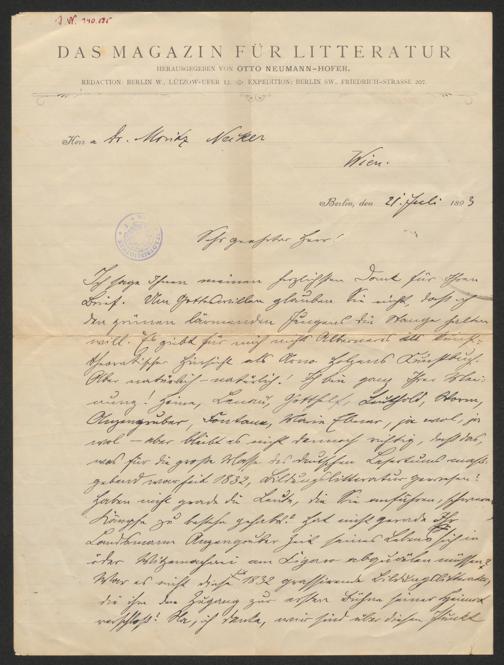 J. N. 140.695
DAS MAGAZIN FÜR LITTERATUR
HERAUSGEGEBEN VON OTTO NEUMANN-HOFER.
REDACTION: BERLIN W., LÜTZOW-UFER 13. EXPEDITION: BERLIN SW., FRIEDRICH-STRASSE 207.
Herrn Dr. Moritz Necker
Wien.
Berlin, den 21. Juli 1893
Sehr geehrter Herr!
Ich sage Ihnen meinen herzlichsten Dank für Ihren
Brief. Um Gotteswillen glauben Sie nicht, daß ich
den grünen lärmenden Jungens die Stange halten
will. Es giebt für mich nicht Alberneres als kunst-
theoretischer Hinsicht als Arno Holzens Kunstbuch.
Aber natürlich – natürlich! Ich bin ganz Ihrer Mei-
nung! Heine, Lenau, Gotthelf, Leuthold, Storm,
Anzengruber, Fontane, Marie Ebner, ja wol, ja
wol – aber bleibt es nicht dennoch richtig, daß das,
was für die große Masse des deutschen Lesertums maß-
gebend war seit 1832, Bildungslitteratur gewesen?
Haben nicht grade die Leute, die Sie anführen, schwere
Kämpfe zu bestehn gehabt? Hat nicht gerade Ihr
Landsmann Anzengruber Zeit seines Lebens sich in
oder Witzemacherei am Figaro abquälen müssen?
War es nicht diese 1832 grassirende Bildungslitteratur,
die ihm den Zugang zur ersten Bühne seiner Heimat
verschloß? Na, ich denke, wir sind über diesen Punkt